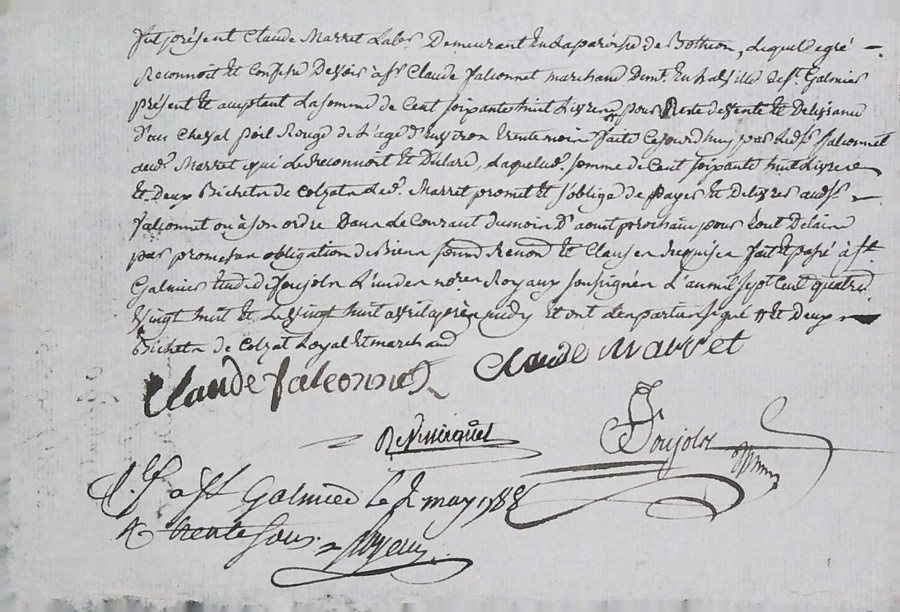 fut présent Claude Marret Labr Demeurant En La paroisse de Bothéon, Lequel de gré
Reconnoit Et Confesse Devoir à sr Claude falconnet marchand Demt En La Ville de st Galmier
présent Et acceptant La somme de Cent soixante huit Livres # pour Vente de Vente Et Delivrance
d'un Cheval poil Rouge de L'age d'Environ trente mois faite Cejourdhuy par Led. sr falconnet
aud. Marret qui Le Reconnoit Et Declare, Laquelle de. somme de Cent soixante huit Livres
Et Deux Bichets de Colzat Led. Marret promet Et s'oblige de payer Et Delivrer aud. sr
falconnet ou à son ordre Dans Le Courant du mois D'aoust prochain pour tout Delais
par promesses obligation de Biens soumd Renond Et Clauses Requises fait Et passé à st
Galmier Etude de soujols L'un des nores Royaux soussignés L'an mil sept Cent quatre
Vingt huit Et Le Vingt huit avril après midy Et ont Les parties signé # Et Deux
Bichets de Colzat Loyal Et marchand
Claude falconnet Claude Marret
Soujols
a st Galmier le 2 may 1788
R trente sous